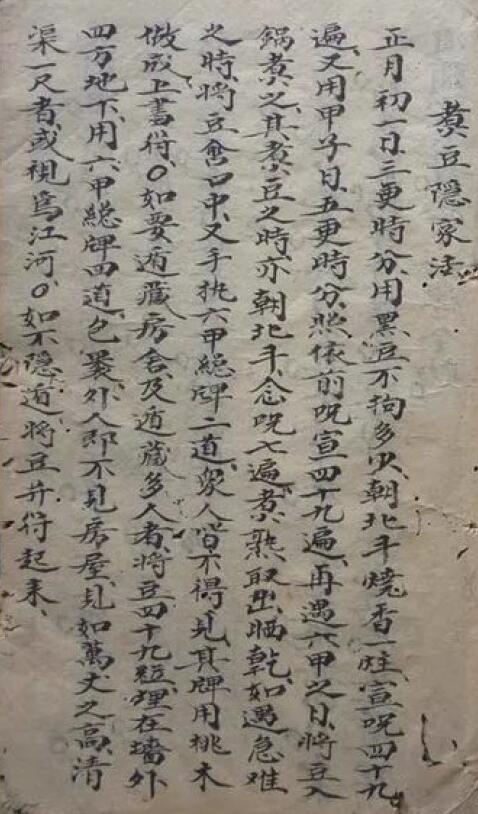 煑豆隱家法
正月初一日、三更時分、用黑豆不拘多少、朝北斗燒香一炷、宣呪四十九
遍、又用甲子日、五更時分、照依前呪宣四十九遍、再遇六甲之日、將豆入
鍋煑之、其煑豆之時、亦朝北斗念呪七遍、煑熟取出晒乾、如遇急难
之時、將豆含口中、又手执六甲總牌二道、衆人皆不得見、其牌用桃木
做成上書符、〇如要遁藏房舍、及遁藏多人者、將豆四十九粒、埋在墻外
四方地下、用六甲總牌四道、包裹、外人即不見房屋、見如萬丈之高、清
渠一尺者、或視爲江河〇如不隱遁、將豆并符起来、